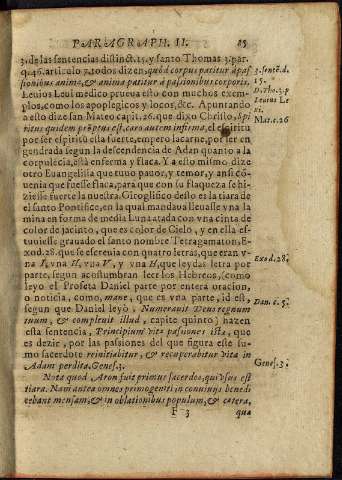 PARAGRAPH. II. 85
3. de las sentencias distinct. 15. y santo Thomas 3. par.
q. 46. articulo 7. todos dizen, quod corpus patitur à pas
sionibus animæ, & anima patitur à passionibus corporis.
Leuios Leui medico prueua esto con muchos exem-
plos, como los apoplegicos y locos, &c. Apuntando
a esto dize san Mateo capit. 26. que dixo Christo, Spi
ritus quidem promptus est, caro autem infirma, el espiritu
por ser espiritu esta fuerte, empero la carne, por ser en
gendrada segun la descendencia de Adan quanto a la
corpulēcia, està enferma y flaca. Y a esto mismo dize
otro Euangelista que tuuo pauor, y temor, y ansi cō
uenia que fuesse flaca, para que con su flaqueza se hi-
ziesse fuerte la nuestra. Giroglifico desto es la tiara de
el santo Pontifice, en la qual mandaua lleuasse vna la
mina en forma de media Luna atada con vna cinta de
color de jacinto, que es color de Cielo, y en ella es-
tuuiesse grauado el santo nombre Tetragamaton, E-
xod. 28. que se escreuia con quatro letras, que eran v-
na I, vna H, vna V, y vna H, que leydas letra por
parte, segun acostumbran leer los Hebreos, (como
leyo el Profeta Daniel parte por entera oracion,
o noticia, como, mane, que es vna parte, id est,
segun que Daniel leyò, Numerauit Deus regnum
tuum, & compleuit illud, capite quinto) hazen
esta sentencia, Principium vitæ passiones ista, que
es dezir, por las passiones del que figura este su-
mo sacerdote reinitiabitur, & recuperabitur vita in
Adam perdita. Genes. 3.
Nota quod Aron fuit primus sacerdos, qui vsus est
tiara. Nam antea omnes primogeniti in conuiuijs benedi
cebant mensam, & in oblationibus populum, & cætera,
F 3 qua
3. sentē. d.
15.
D. Tho. 3. p
Leuius Le
ui.
Mat. c. 26
Exod. 28.
Dan. c. 5.
Genes. 3.